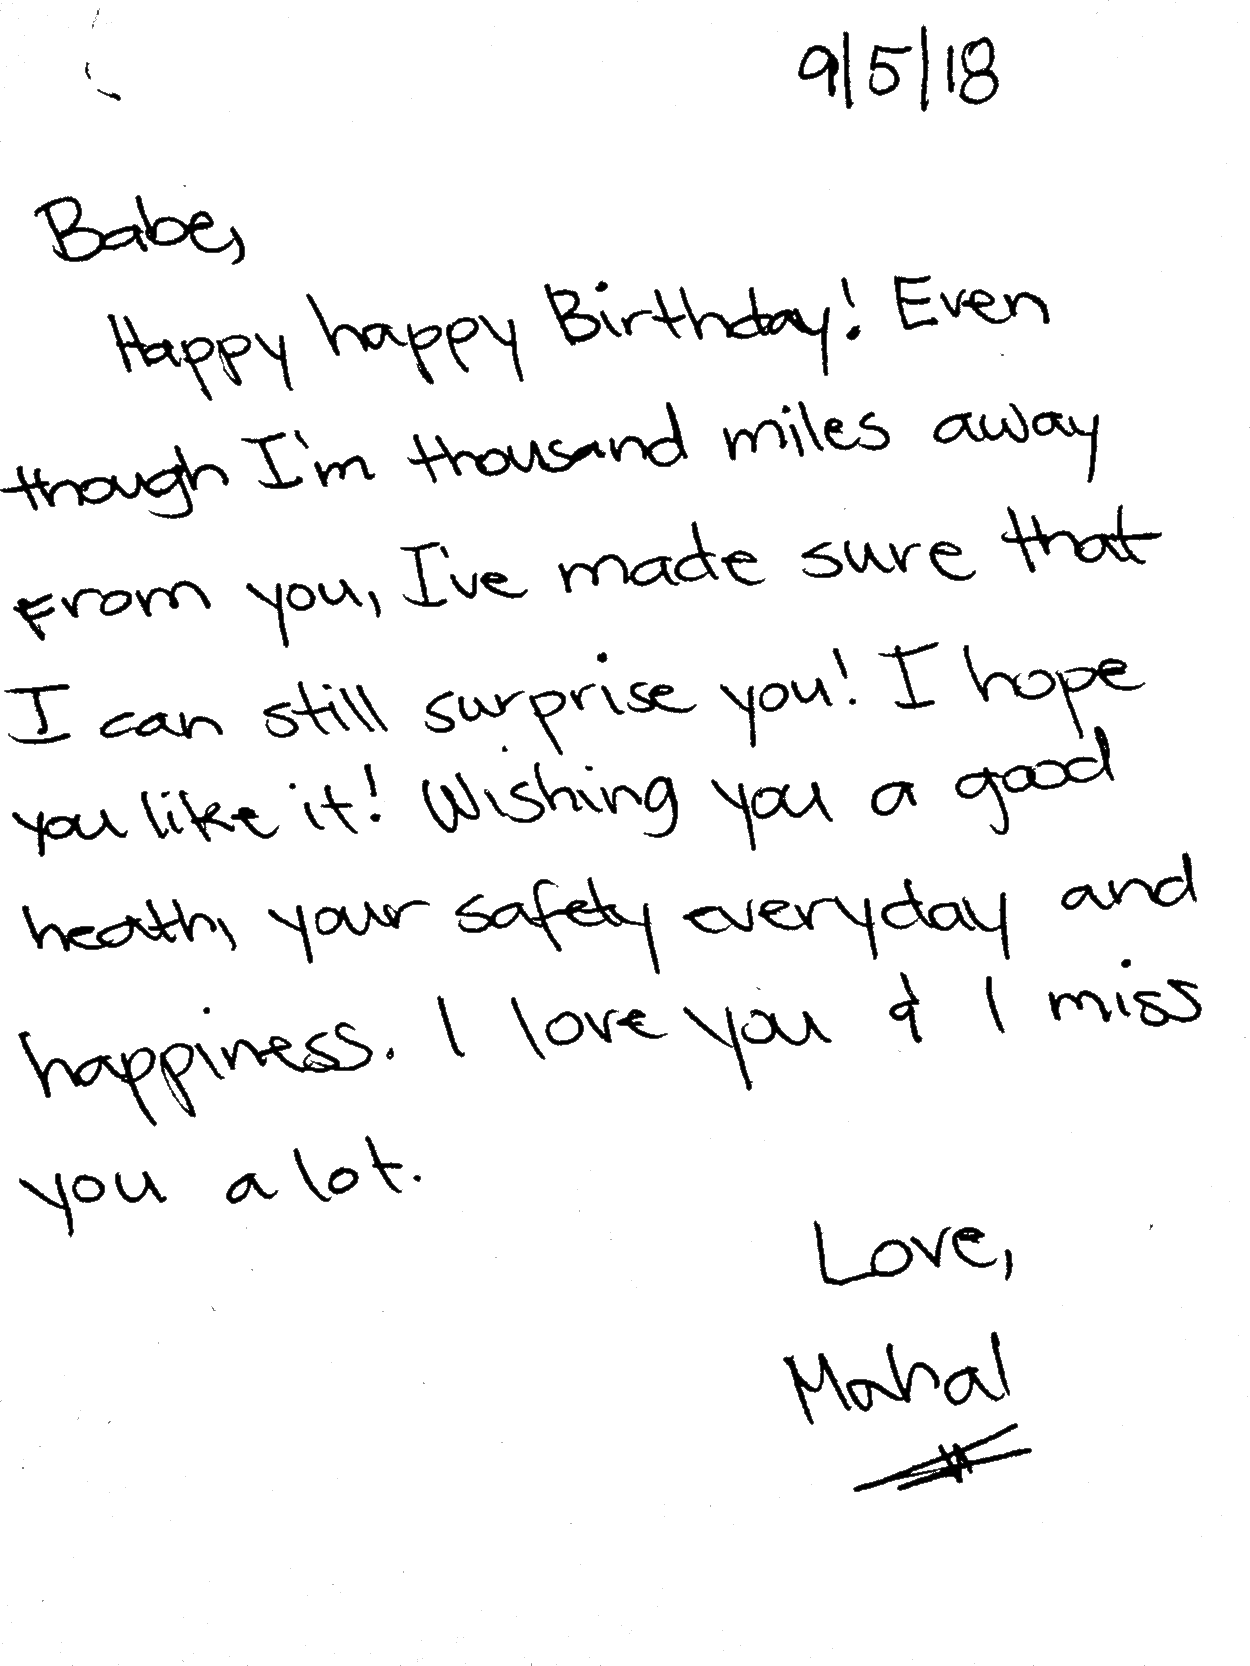 9/5/18
Babe,
Happy happy Birthday! Even
though I'm thousand miles away
From you, I've made sure that
I can still surprise you! I hope
you like it! Wishing you a good
heath, your safety everyday and
happiness. I love you & I miss
you a lot.
Love,
Mahal